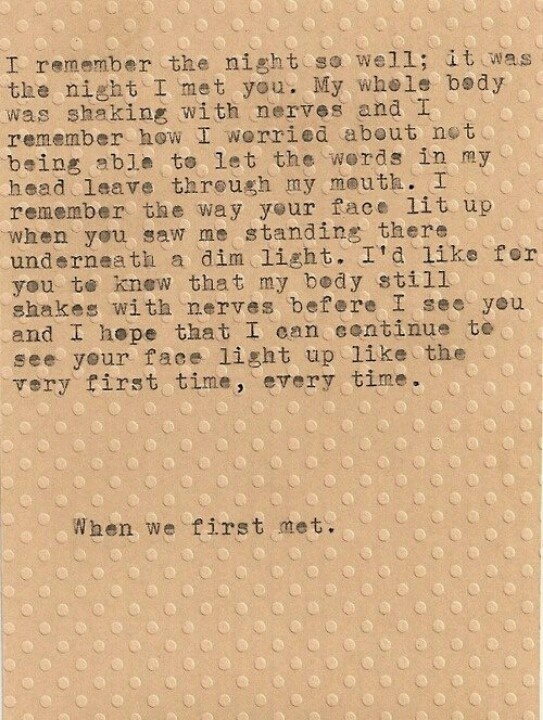 I remember the night so well; it was
the night I met you. My whole body
was shaking with nerves and I
remember how I worried about not
being able to let the words in my
head leave through my mouth. I
remember the way your face lit up
when you saw me standing there
underneath a dim light. I'd like for
you to know that my body still
shakes with nerves before I see you
and I hope that I can continue to
see your face light up like the
very first time, every time.
When we first met.